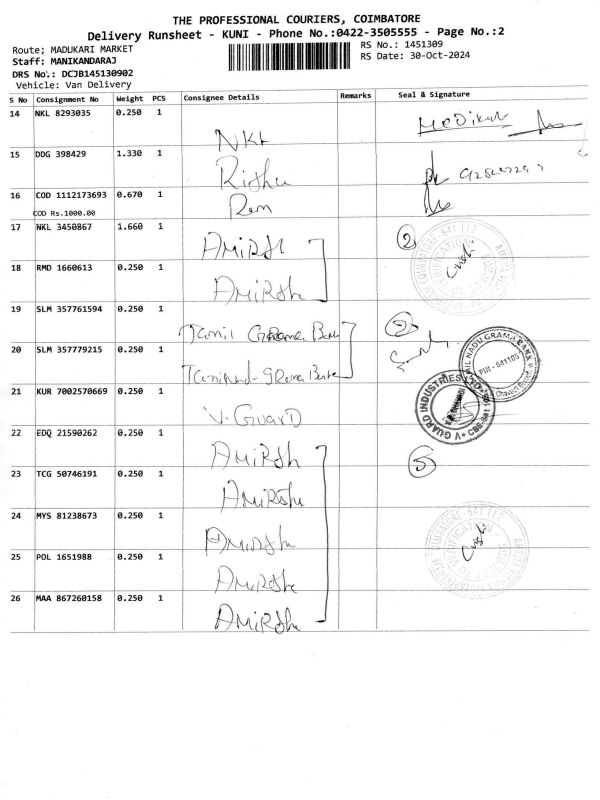 THE PROFESSIONAL COURIERS, COIMBATORE
Delivery Runsheet - KUNI - Phone No.:0422-3505555 - Page No.:2
Route; MADUKARI MARKET
RS No.: 1451309
Staff: MANIKANDARAJ
RS Date: 30-Oct-2024
DRS No.: DCJB145130902
Vehicle: Van Delivery
S No Consignment No Weight PCS Consignee Details Remarks Seal & Signature
14 NKL 8293035 0.250 1 NKL
15 DDG 398429 1.330 1
16 COD 1112173693 0.670 1
COD Rs.1000.00
17 NKL 3450867 1.660 1 AMIRSh 2
18 RMD 1660613 0.250 1 AMIRSha
19 SLM 357761594 0.250 1 Tamil Grama Bank 2
20 SLM 357779215 0.250 1 Tamilnad-grama Bank
TAMIL NADU GRAMA BANK
641105
21 KUR 7002570669 0.250 1 V. GuarD
V GUARD INDUSTRIES LTD
22 EDQ 21590262 0.250 1 AMIRSh 5
23 TCG 50746191 0.250 1 AMIRSha
24 MYS 81238673 0.250 1 AMIRSha
25 POL 1651988 0.250 1 AMIRSha
26 MAA 867260158 0.250 1 AMIRSha